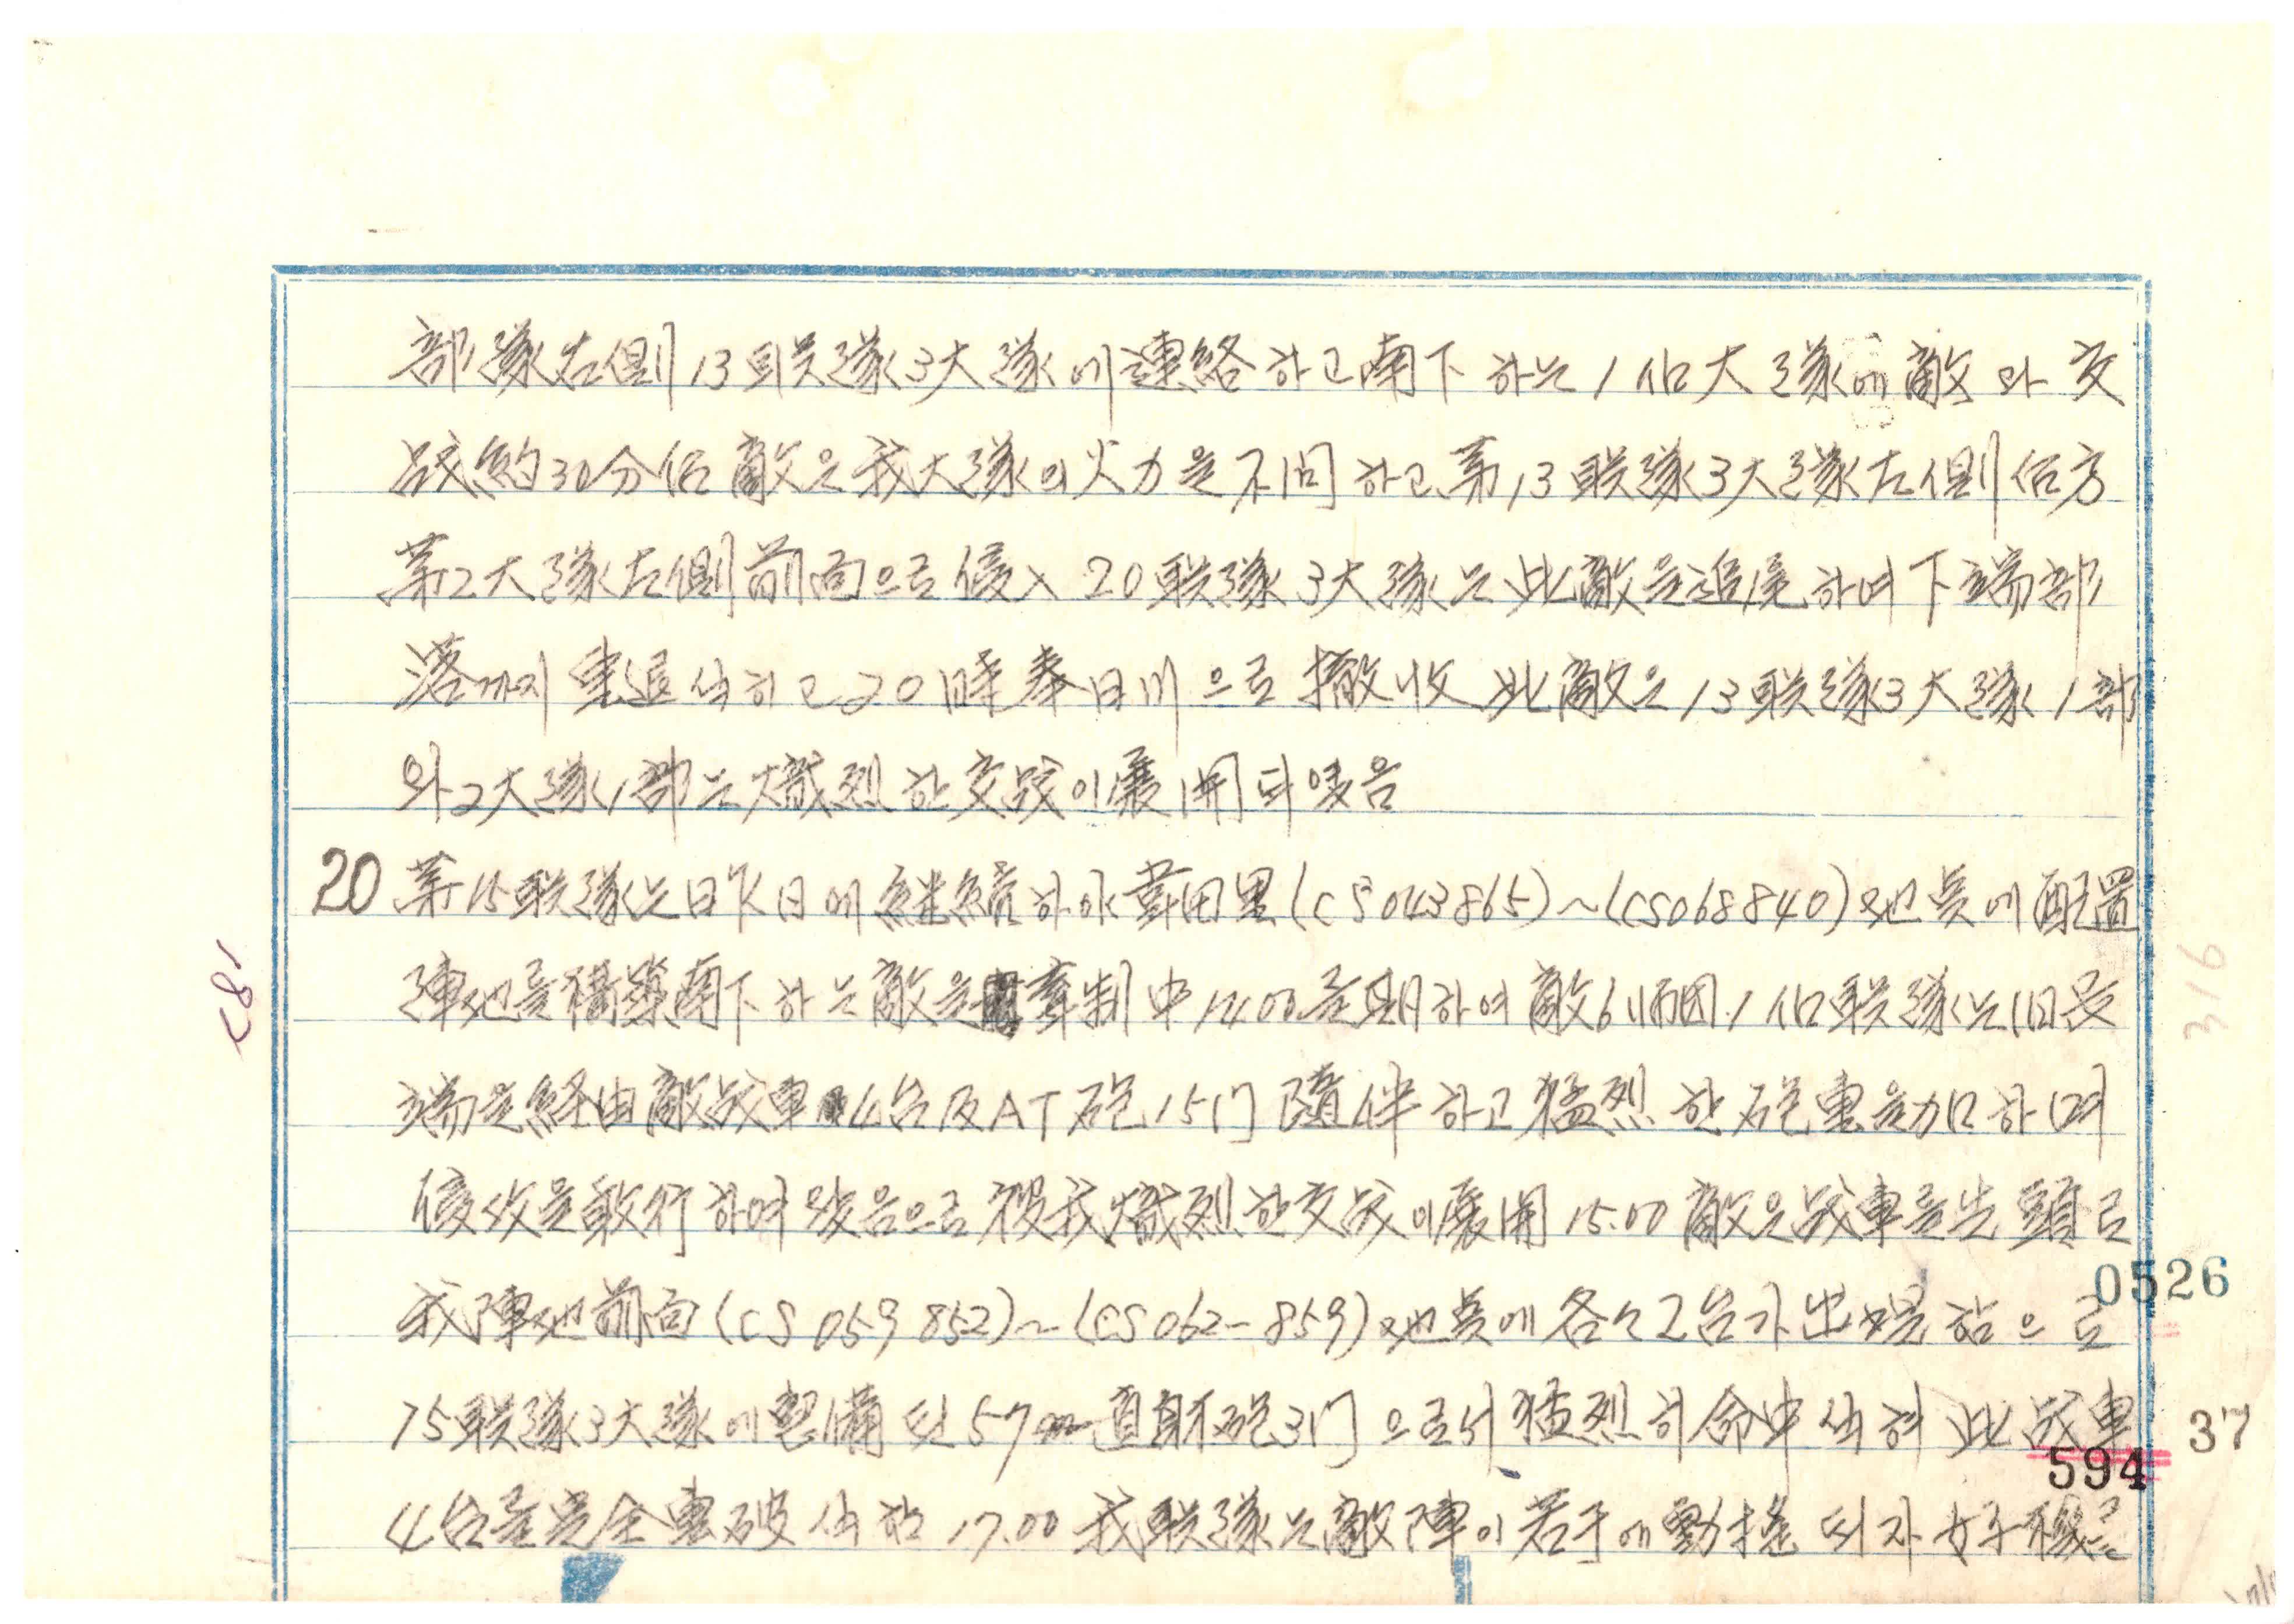 部隊左側 13联隊 3大隊에 連絡하고 南下하는 1個大隊에 敵와 交
战 約30分 间 敵은 我大隊의 火力을 不问하고 第13联隊 3大隊 左側 后方
第2大隊 左側 前面으로 侵入 20联隊 3大隊는 此敵을 追尾하여 下端部
落까지 击退식히고 20時 奉日川으로 撤收 此敵은 13联隊 3大隊 1部
와 2大隊 1部는 熾烈한 交战이 展開되였음
20 第15联隊는 日昨日에 継續하야 葛田里(CS043865)~(CS068840)地点에 配置
陣地를 構築 南下하는 敵을 牽制中 14.00를 期하여 敵6師团 1個联隊는 旧長
端을 経由 敵战車 4台及 AT砲 15门 隨伴하고 猛烈한 砲擊을 加하며
侵攻을 敢行하여 왔음으로 彼我 熾烈한 交战이 展開 15.00 敵은 战車를 先頭로
我陣地 前面(CS059852)~(CS062-859)地点에 各々 2台가 出現함으로
15联隊 3大隊에 裝備된 57㎜ 直射砲 3门으로서 猛烈히 命中식혀 此 战車
4台를 完全 擊破식힘 17.00 我联隊는 敵陣이 若干에 動搖되자 好機를
<8'
316
0526
37
594